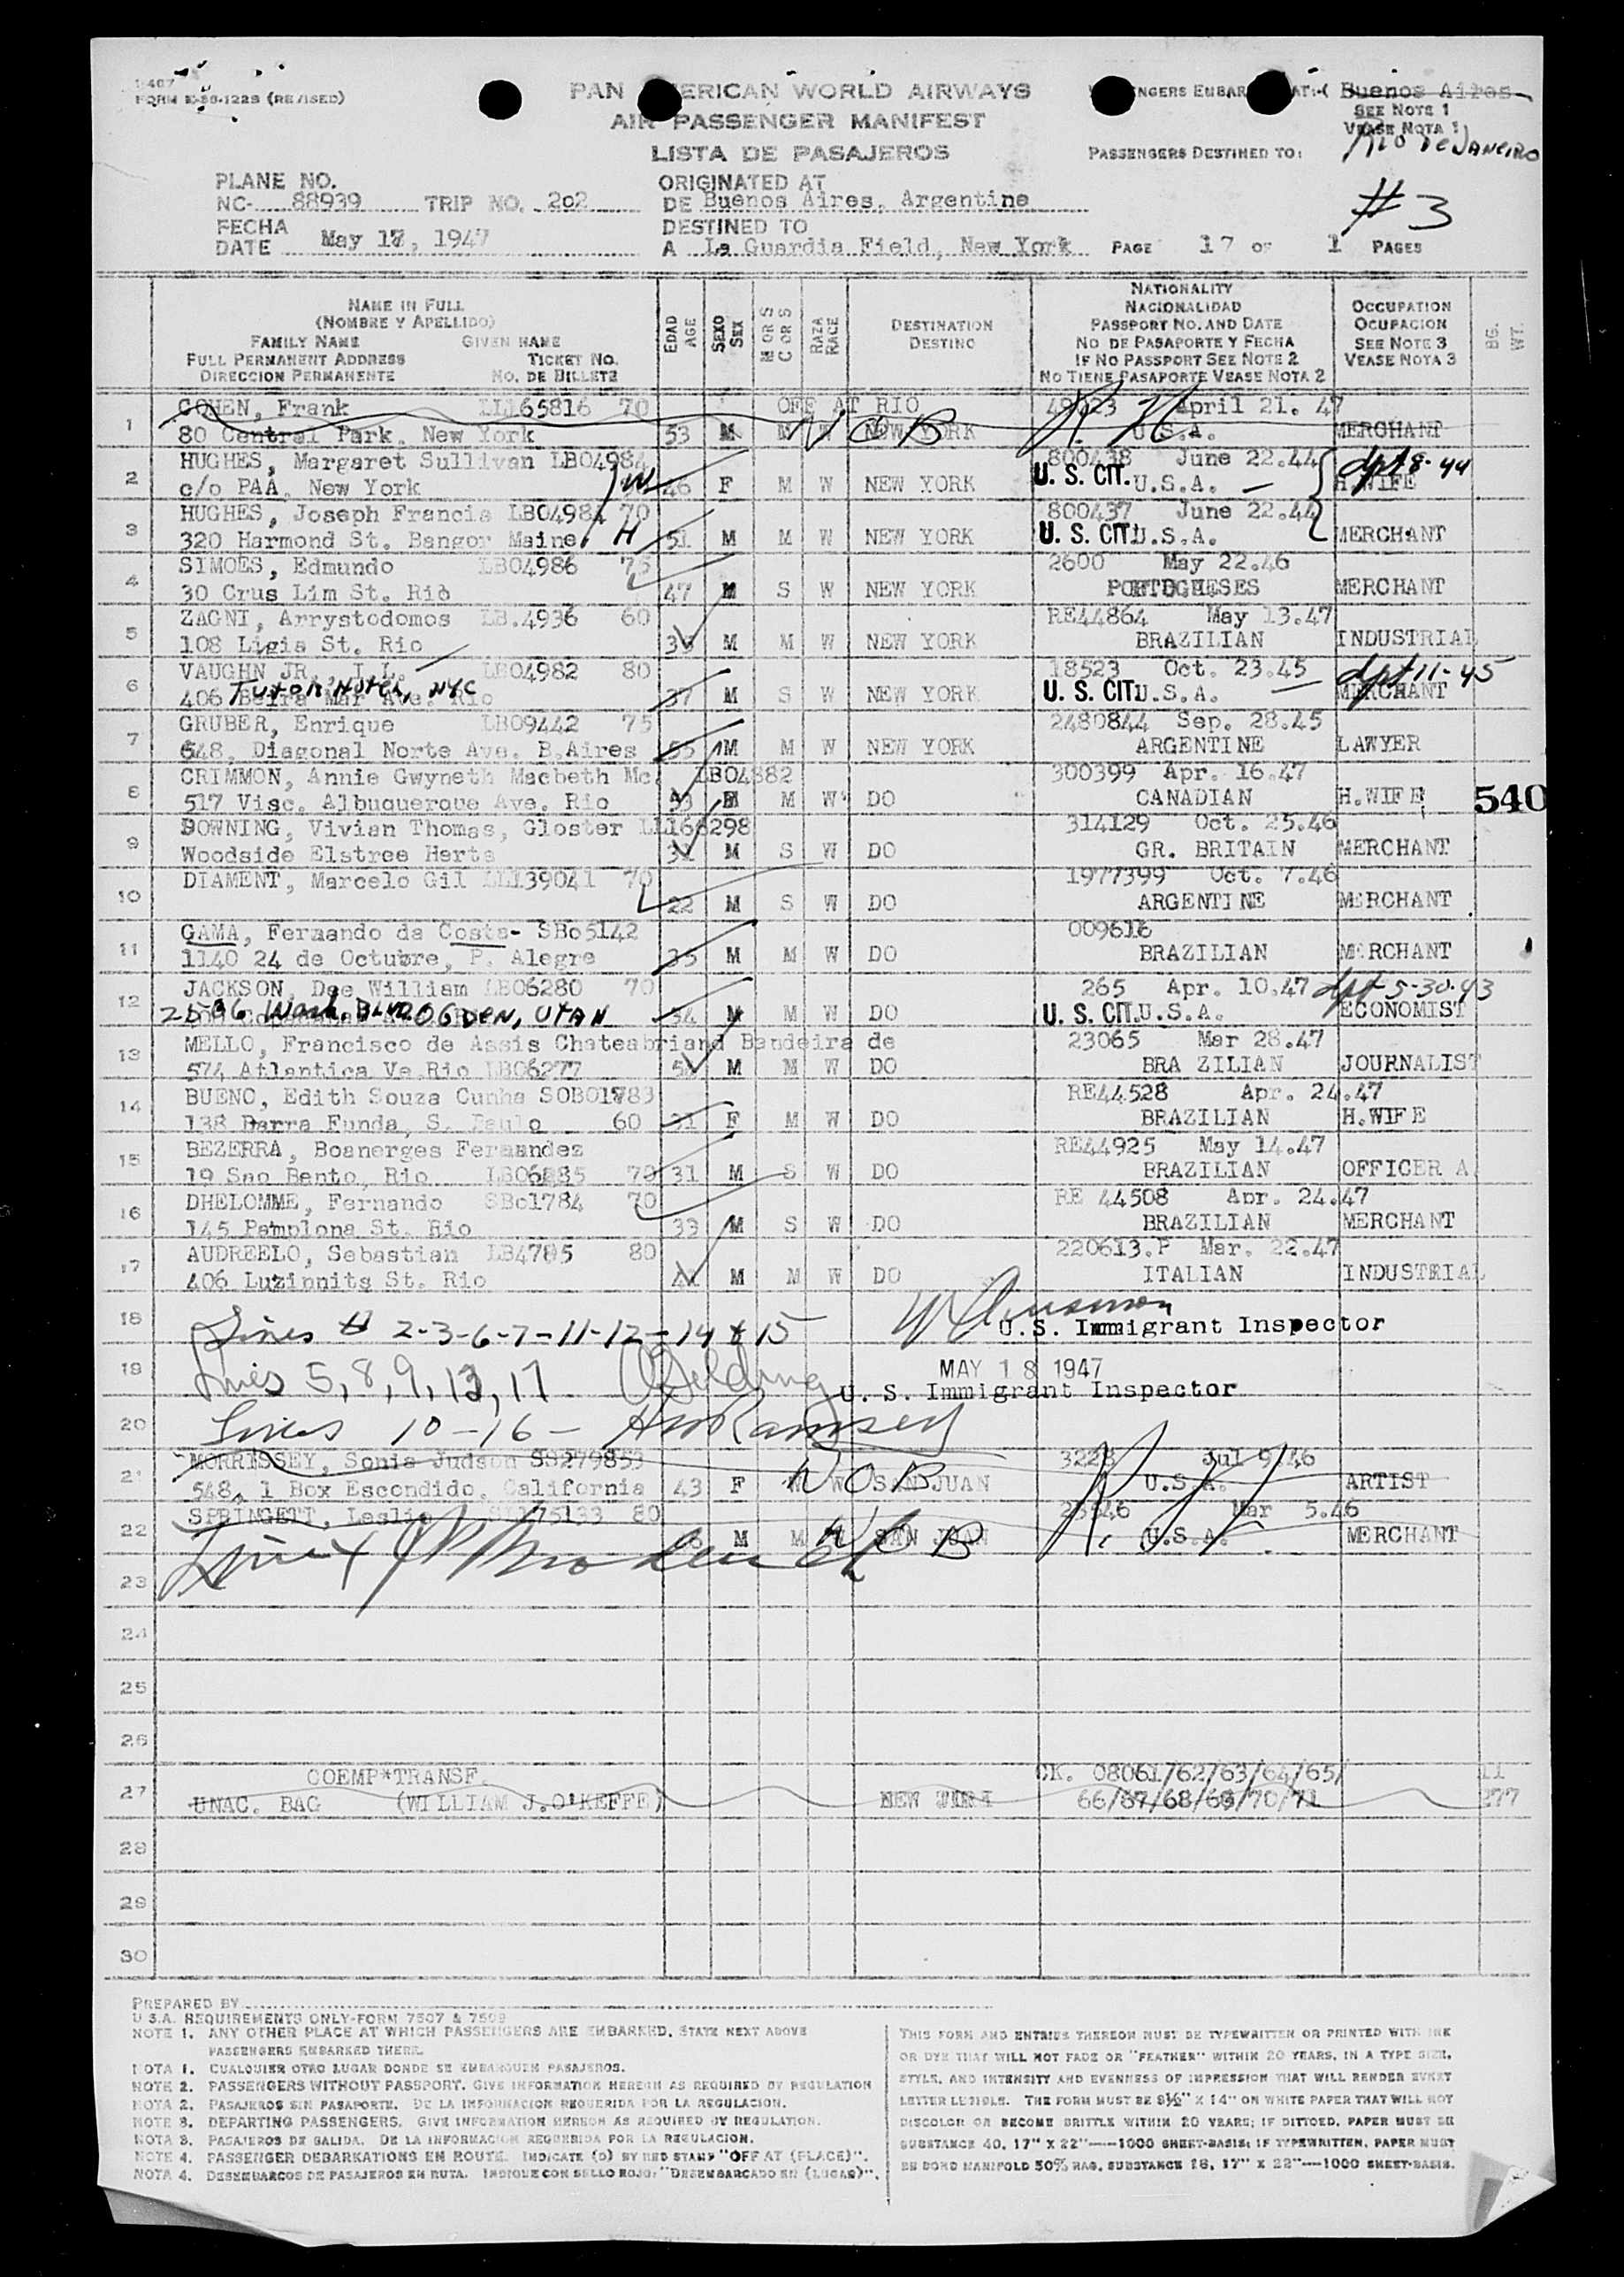 FORM (REVISED)
PAN AMERICAN WORLD AIRWAYS
AIR PASSENGER MANIFEST
LISTA DE PASAJEROS
Buenos Aires
SEE NOTE 1
VEASE NOTA 1
PASSENGERS DESTINED TO:
Rio De Janeiro
#3
PLANE NO.
NC- 88939 TRIP NO. 202
FECHA
DATE May 17, 1947
ORIGINATED AT
DE Buenos Aires, Argentine
DESTINED TO
A La Guardia Field, New York PAGE 17 OF 1 PAGES
NAME IN FULL
(NOMBRE Y APELLIDO)
FAMILY NAME GIVEN NAME
FULL PERMANENT ADDRESS TICKET NO.
DIRECCION PERMANENTE NO. DE BILLETE
EDAD AGE
SEXO SEX
M OR S
C OR S
RAZA RACE
DESTINATION
DESTINO
NATIONALITY
NACIONALIDAD
PASSPORT NO. AND DATE
NO DE PASAPORTE Y FECHA
IF NO PASSPORT SEE NOTE 2
NO TIENE PASAPORTE VEASE NOTA 2
OCCUPATION
OCUPACION
SEE NOTE 3
VEASE NOTA 3
BG. WT.
1 COHEN, Frank 70 OFF AT RIO April 21. 47
80 Central Park, New York 53 M M W NEW YORK U.S.A. MERCHANT
NOB
2 HUGHES, Margaret Sullivan LB04984 800438 June 22.44 dpt 8-44
c/o PAA, New York 46 F M W NEW YORK U. S. CIT. U.S.A. H.WIFE
3 HUGHES, Joseph Francis LB04984 70 800437 June 22.44
320 Harmond St. Bangor Maine 51 M M W NEW YORK U. S. CIT. U.S.A. MERCHANT
4 SIMOES, Edmundo LB04986 75 2600 May 22.46
30 Crus Lim St. Rio 47 M S W NEW YORK MERCHANT
5 ZAGNI, Arrystodomos LB.4936 60 RE44864 May 13.47
108 Ligia St. Rio M M W NEW YORK BRAZILIAN INDUSTRIAL
6 VAUGHN JR., LB04982 80 18523 Oct. 23.45 dpt 11-45
Tudor Hotel, NYC
406 Beira Mar Ave. Rio 37 M S W NEW YORK U. S. CIT. U.S.A. MERCHANT
7 GRUBER, Enrique LB09442 75 2480844 Sep. 28.45
648, Diagonal Norte Ave. B.Aires 55 M M W NEW YORK ARGENTINE LAWYER
8 CRIMMON, Annie Gwyneth Macbeth Mc. LB04882 300399 Apr. 16.47
517 Visc. Albuquerque Ave. Rio 53 F M W DO CANADIAN H.WIFE 540
9 DOWNING, Vivian Thomas, Gloster 314129 Oct. 25.46
Woodside Elstree Herts M S W DO GR. BRITAIN MERCHANT
10 DIAMENT, Marcelo Gil 70 1977399 Oct. 7.46
22 M S W DO ARGENTINE MERCHANT
11 GAMA, Fernando da Costa- SBo5142 009616
1140 24 de Octubre, P. Alegre 35 M M W DO BRAZILIAN MERCHANT
12 JACKSON, Dee William LB06280 70 265 Apr. 10.47 dpt 5-30-43
Wash. Blvd OGDEN, UTAH 54 M M W DO U. S. CIT. U.S.A. ECONOMIST
13 MELLO, Francisco de Assis Chateabriand Bandeira de 23065 Mar 28.47
574 Atlantica Ve.Rio LB06277 M M W DO BRA ZILIAN JOURNALIST
14 BUENO, Edith Souza Cunha SOB01783 RE44528 Apr. 24.47
138 Barra Funda, S. Paulo 60 31 F M W DO BRAZILIAN H.WIFE
15 BEZERRA, Boanerges Fernandez RE44925 May 14.47
19 Sao Bento, Rio 70 31 M S W DO BRAZILIAN OFFICER A.
16 DHELOMME, Fernando SBo1784 70 RE 44508 Apr. 24.47
145 Pamplona St. Rio 33 M S W DO BRAZILIAN MERCHANT
17 AUDREELO, Sebastian LB4785 80 220613.P Mar. 22.47
406 Luzinnits St. Rio M M W DO ITALIAN INDUSTRIAL
18 Lines # 2-3-6-7-11-12-14 & 15
U.S. Immigrant Inspector
19 Lines 5, 8, 9, 13, 17 MAY 18 1947
U. S. Immigrant Inspector
20 Lines 10-16- Ramsey
21 MORRISSEY, Sonia Judson SS279853 3228 Jul 9.46
548, 1 Box Escondido, California 43 F W SAN JUAN U.S.A. ARTIST
NOB
22 SPRINGETT, Leslie 80 Mar 5.46
M M SAN JUAN U.S.A. MERCHANT
23
24
25
26
27 COEMP*TRANSF. CK. 08061/62/63/64/65/ 11
UNAC. BAG (WILLIAM J.O'KEFFE) NEW YORK 66/67/68/69/70/71 277
28
29
30
PREPARED BY
U.S.A. REQUIREMENTS ONLY-FORM 7507 & 7509
NOTE 1. ANY OTHER PLACE AT WHICH PASSENGERS ARE EMBARKED, STATE NEXT ABOVE
PASSENGERS EMBARKED THERE.
NOTA 1. CUALQUIER OTRO LUGAR DONDE SE EMBARQUEN PASAJEROS.
NOTE 2. PASSENGERS WITHOUT PASSPORT. GIVE INFORMATION HEREON AS REQUIRED BY REGULATION
NOTA 2. PASAJEROS SIN PASAPORTE. DE LA INFORMACION REQUERIDA POR LA REGULACION.
NOTE 3. DEPARTING PASSENGERS. GIVE INFORMATION HEREON AS REQUIRED BY REGULATION.
NOTA 3. PASAJEROS DE SALIDA. DE LA INFORMACION REQUERIDA POR LA REGULACION.
NOTE 4. PASSENGER DEBARKATIONS EN ROUTE. INDICATE (D) BY RED STAMP "OFF AT (PLACE)".
NOTA 4. DESEMBARCOS DE PASAJEROS EN RUTA. INDIQUE CON SELLO ROJO: "DESEMBARCADO EN (LUGAR)".
THIS FORM AND ENTRIES THEREON MUST BE TYPEWRITTEN OR PRINTED WITH INK
OR DYE THAT WILL NOT FADE OR "FEATHER" WITHIN 20 YEARS, IN A TYPE SIZE,
STYLE, AND INTENSITY AND EVENNESS OF IMPRESSION THAT WILL RENDER EVERY
LETTER LEGIBLE. THE FORM MUST BE 8½" X 14" ON WHITE PAPER THAT WILL NOT
DISCOLOR OR BECOME BRITTLE WITHIN 20 YEARS; IF DITTOED, PAPER MUST BE
SUBSTANCE 40, 17" X 22"—1000 SHEET-BASIS; IF TYPEWRITTEN, PAPER MUST
BE BOND MANIFOLD 50% RAG, SUBSTANCE 16, 17" X 22"—1000 SHEET-BASIS.